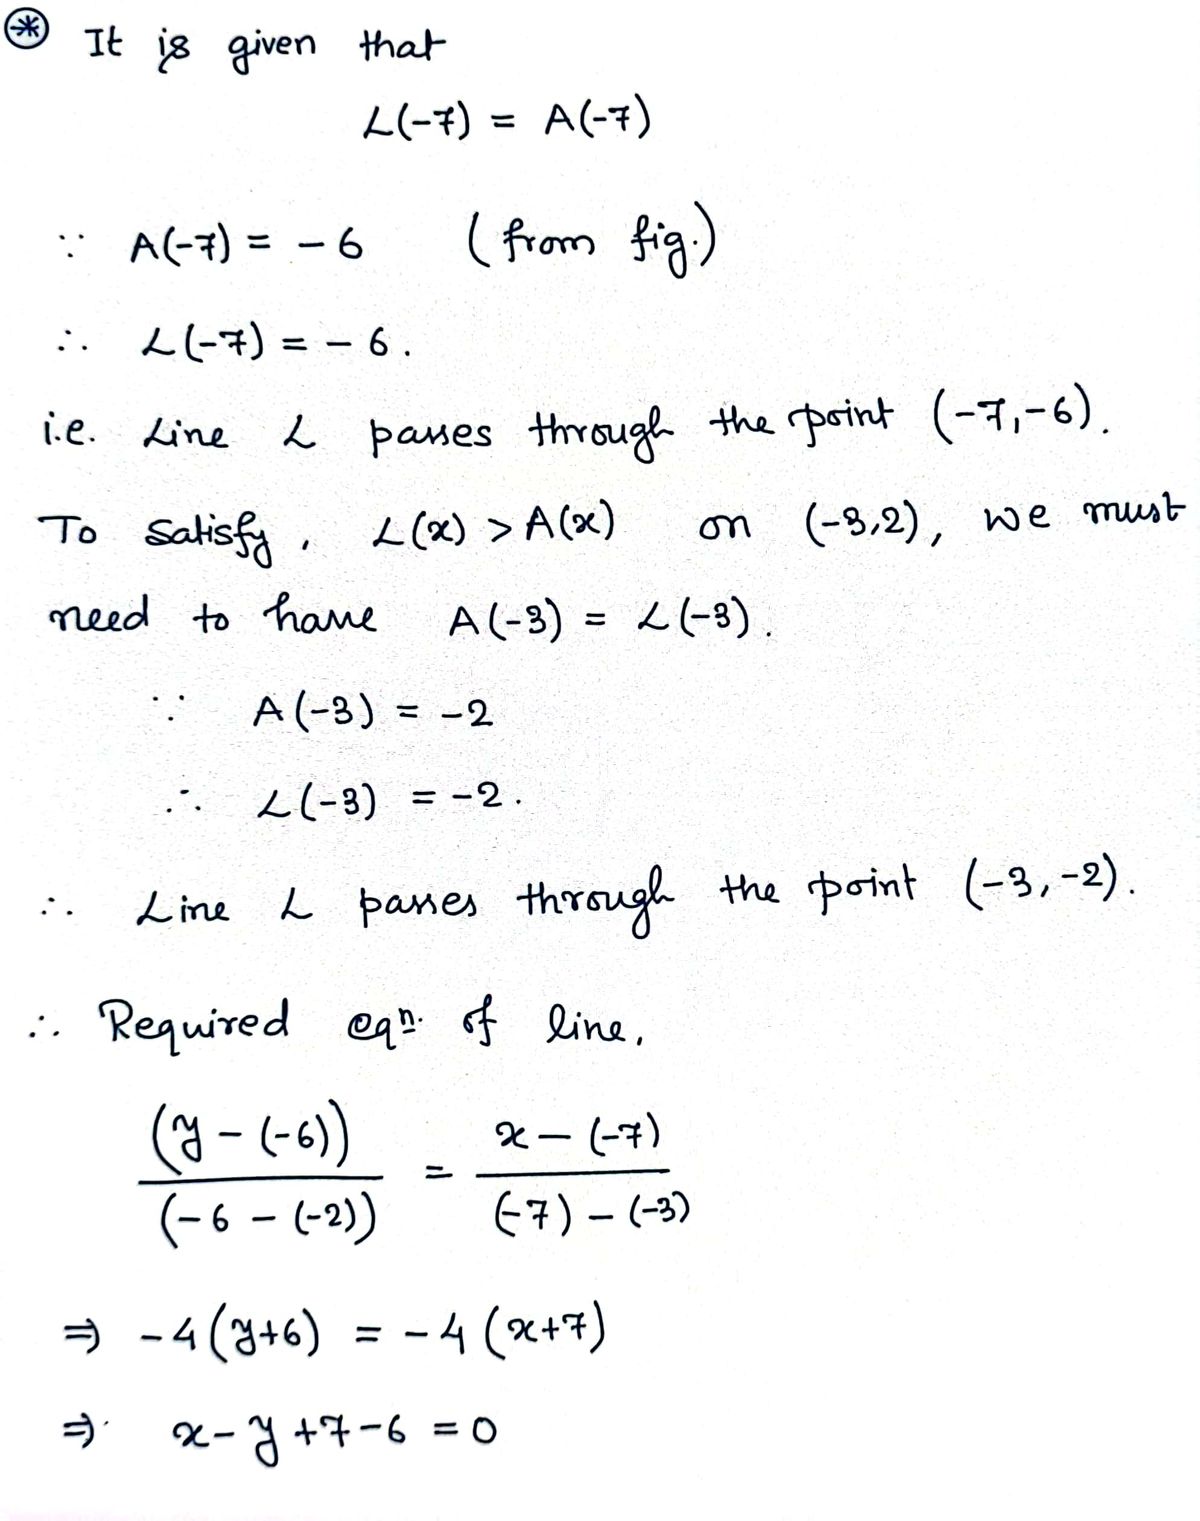 ⊛ It is given that
L(-7) = A(-7)
∵ A(-7) = -6 (from fig.)
∴ L(-7) = -6.
i.e. Line L passes through the point (-7,-6).
To satisfy, L(x) > A(x) on (-3,2), we must
need to have A(-3) = L(-3).
∵ A(-3) = -2
∴ L(-3) = -2.
∴ Line L passes through the point (-3,-2).
∴ Required eqn. of line,
(y-(-6))/(-6-(-2)) = x-(-7)/(-7)-(-3)
⇒ -4(y+6) = -4(x+7)
⇒ x-y+7-6 = 0